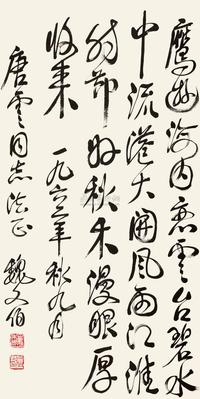 鹰游海内忘云台碧水
中流港大开风雨江淮
时节好秋禾漫眼厚
收来 一九六三年秋九月
唐云同志法正 魏文伯